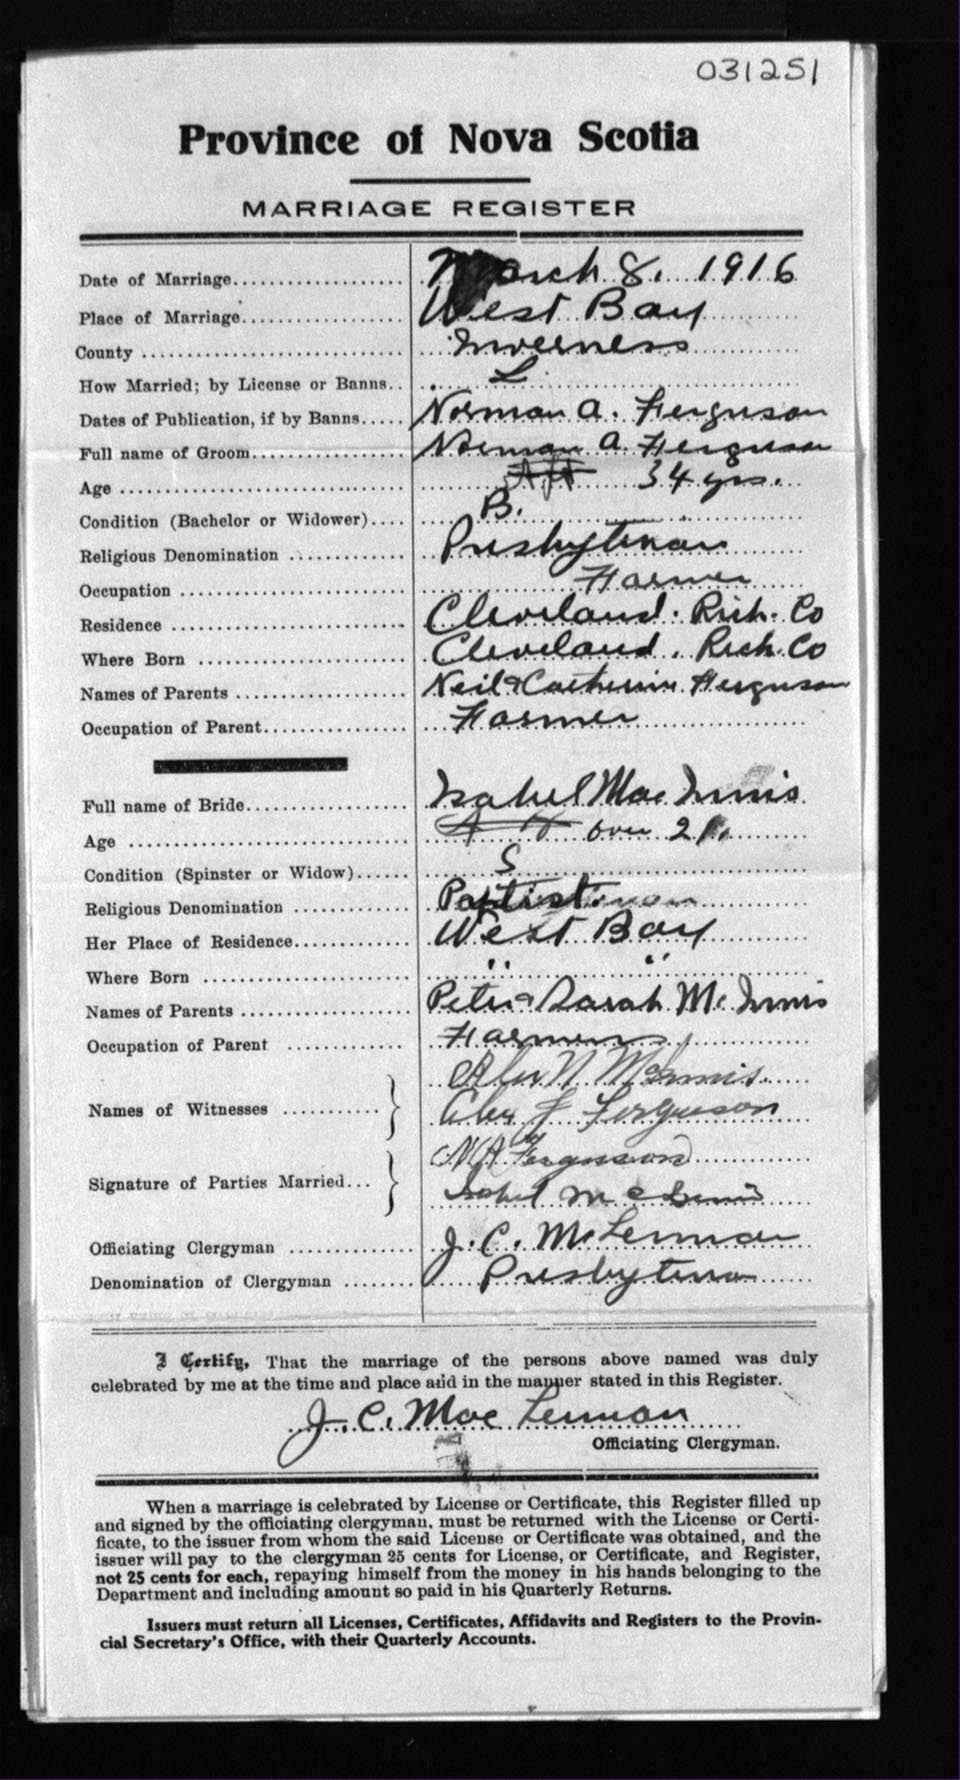 031251
Province of Nova Scotia
MARRIAGE REGISTER
Date of Marriage.................. March 8. 1916
Place of Marriage.................. West Bay
County .................. Inverness
How Married; by License or Banns.. L
Dates of Publication, if by Banns..... Norman A. Ferguson
Full name of Groom.................. Norman A. Ferguson
Age .................. 34 yrs.
Condition (Bachelor or Widower).... B.
Religious Denomination ............ Presbyterian
Occupation .................. Farmer
Residence .................. Cleveland. Rich. Co
Where Born .................. Cleveland. Rich. Co
Names of Parents .................. Neil & Catherine Ferguson
Occupation of Parent.................. Farmer
Full name of Bride.................. Isabel MacInnis
Age .................. over 21.
Condition (Spinster or Widow)...... S
Religious Denomination ............ Baptist
Her Place of Residence............. West Bay
Where Born .................. " "
Names of Parents .................. Peter & Sarah McInnis
Occupation of Parent ............ Farmer
Alex N McInnis.
Names of Witnesses ............ Alex J Ferguson
N A Ferguson
Signature of Parties Married... Isabel McInnis
Officiating Clergyman .............. J. C. McLennan
Denomination of Clergyman ........ Presbyterian
I Certify, That the marriage of the persons above named was duly
celebrated by me at the time and place and in the manner stated in this Register.
J. C. MacLennan
Officiating Clergyman.
When a marriage is celebrated by License or Certificate, this Register filled up
and signed by the officiating clergyman, must be returned with the License or Certi-
ficate, to the issuer from whom the said License or Certificate was obtained, and the
issuer will pay to the clergyman 25 cents for License, or Certificate, and Register,
not 25 cents for each, repaying himself from the money in his hands belonging to the
Department and including amount so paid in his Quarterly Returns.
Issuers must return all Licenses, Certificates, Affidavits and Registers to the Provin-
cial Secretary's Office, with their Quarterly Accounts.